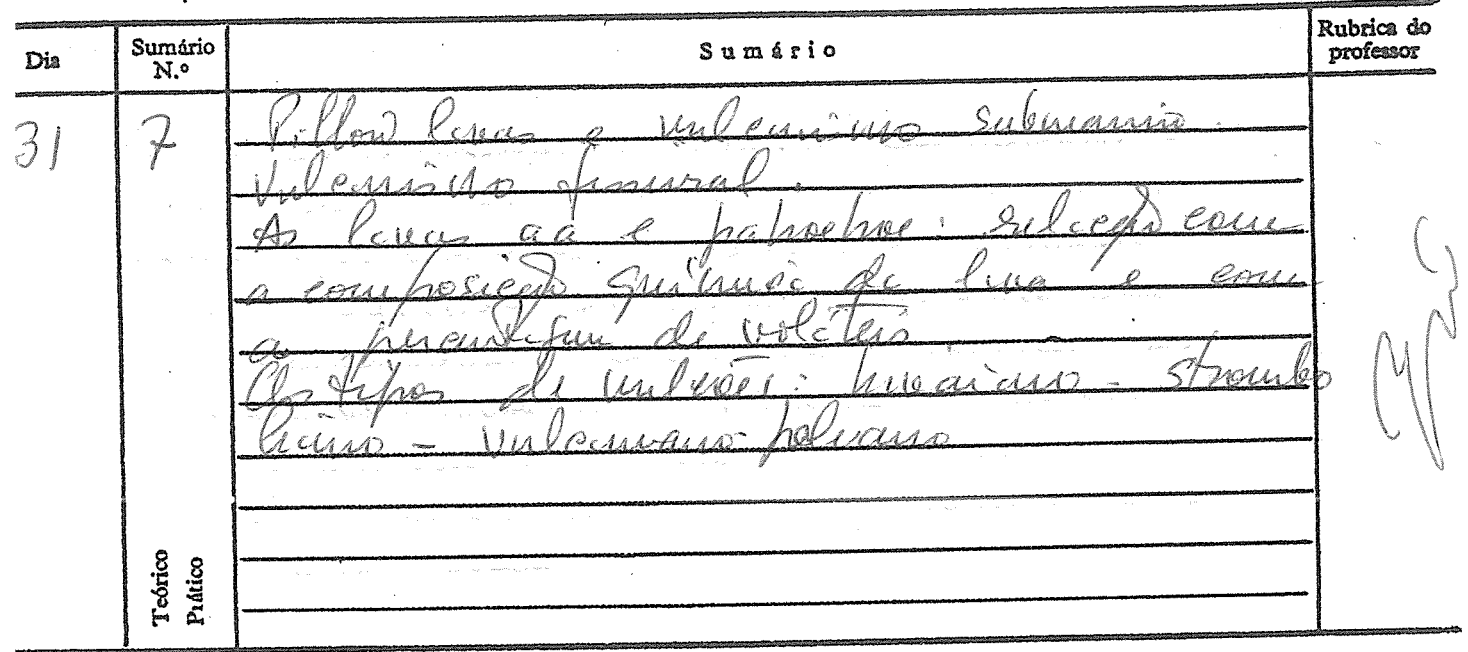 Dia
Sumário
N.º
Sumário
Rubrica do
professor
31
7
Pillow lavas e vulcanismo submarino.
Vulcanismo fissural.
As lavas aa e pahoehoe: relação com
a composição química da lava e com
a percentagem de voláteis.
Os tipos de vulcões: havaiano - strombo
liano - vulcaniano - peleano
Teórico
Prático